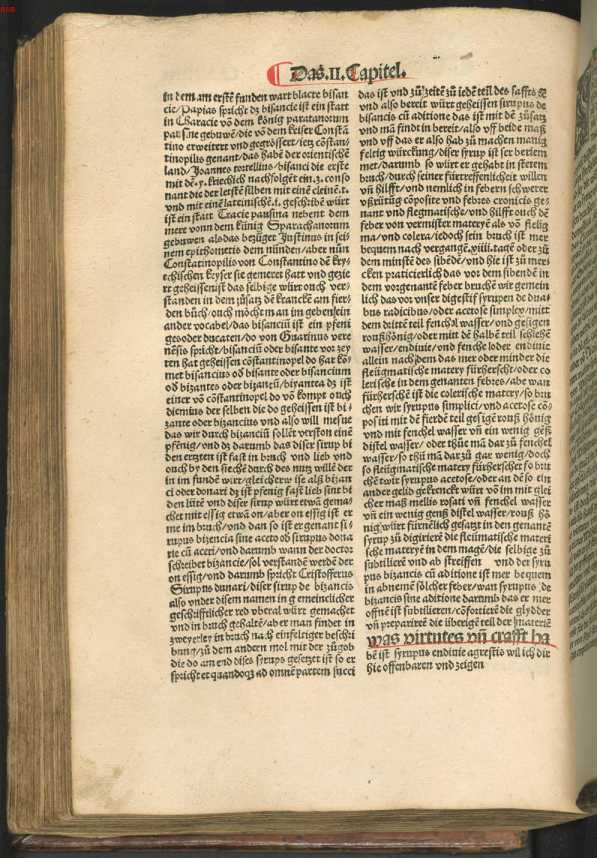 Das .II. Capitel.
in dem am erstē funden wart blacre bisan
cie/Papias spricht dz bisancie ist ein statt
in Characie vō dem künig paratanorum
gebuwē/die vō dem keiser Constā
tino erweitert vnd gegrössert/ietz cōstan⸗
tinopilis genant/das habē der orientischē
land/Joannes tortellius/bisanci die erste
mit dē .y. kriechisch nachfolgēt ein .z. conso
nant die der leistē silben mit eine cleinē .t.
vnd mit einē lattinischē .i. geschribē würt
ist ein statt Tracie pausina nebent dem
mere vonn dem künig Sparachanorum
gebuwen als das bezüget Justinus in sei⸗
nem epithometis dem nünden/aber nün
Constatinopilis von Constantino dē kry⸗
echischen keyser sie gemeret hatt vnd gezie
rt geheissen ist das selbige würt ouch ver⸗
standen in dem züsatz dē kranckē am fier⸗
den büch/ouch möcht man im geben sein
ander vocabel/das bisanciū ist ein pfeni
ges oder ducaten/do von Guarinus vere
nēsis spricht/bisanciū oder bisante vor zey
ten hat geheissen cōstantinopel do har kō⸗
met bisancius oð bisante oder bisancium
oð bizantes oder bizancū/biyantea dz ist
einer vō cōstātinopel do vō kompt ouch
diemius der selben die do geheissen ist bi⸗
zante oder bizancius vnd also will mesue
das wir durch bizanciū sollēt verston eine
pfēnig/vnd dz darumb das diser sirup bi
den erzten ist fast in bruch vnd lieb vnd
ouch by den siechē durch des nutz willē der
in im fundē wirt/gleicher wise als bizan
ci oder donari dz ist pfenig fast lieb sint bi
den lütē vnd diser sirup würt etwā gema⸗
chet mit essig etwā on/aber on essig ist er
me im bruch/vnd dan so ist er genant si⸗
rupus bizencia sine aceto oð sirupus dona
rie cū aceti/vnd darumb wann der doctor
schreibet bizancie/sol verstandē werdē der
on essig/vnd darumb spricht Cristofferus
Sirupus dunari/diser sirup de bizancis
also vnder disem namen in gemeinclicher
geschifftlicher red vberal würt gemachet
vnd in bruch gehaltē/aber man findet in
zweyerley in bruch nach einfeltiger beschri
bung/zü dem andern mol mit der zügob
die do am end dises syrups gesetzet ist so er
spricht et quandoqz ad omnē partem succi
das ist vnd zü zeitē zü iedē teil des saffts ꝛc
vnd also bereit würt geheissen sirupus de
bisancis cū aditione das ist mit dē züsatz
vnd mā findt in bereit/also vff beide maß
vnd vff das er also hab zü machen manig
feltig würckung/diser syrup ist ser beriem
met/darumb so würt er gehabt in stetem
bruch/durch seiner fürtreffenlicheit willen
vñ hilfft/vnd nemlich in febern schwerer
vßrütūg cōposite vnd febres cronicis ge⸗
nant vnd flegmatische/vnd hilfft ouch dē
feber von vermister materyē als vō fleig
ma/vnd colera/iedoch sein bruch ist mer
bequem nach vergangē .xiiii. tagē oder zü
dem minstē des sibēdē/vnd hie ist zü mer⸗
cken praticierlich das vor dem sibendē in
dem vorgenantē feber bruchē wir gemein
lich das vor vnser digestif syrupen de dua⸗
bus radicibus/oder acetose simplex/mitt
dem dritte teil fenchꝛl wasser/vnd gesigen
roußhönig/oder mit dē halbē teil schlehē
wasser/endiuie/vnd fenchel oder endiuie
allein nachdem das mer oder minder die
fleügmatische matery fürherscht/oder co
lerische in dem genanten febres/abe wan
fürherschē ist die colerische matery/so bru
chen wir syrupus simplici/vnd acetose cō⸗
positi mit dē fierdē teil gesigē rouß hönig
vnd mit fenchel wasser vñ ein wenig gēß
distel wasser/oder thüe mā dar zü fenchel
wasser/so thü mā dar zü gar wenig/doch
so fleügmatische matery fürherschet so bru
chē wir syrupus acetose/oder an dē so ein
ander gelid gekrenckt würt vō im mit glei
cher maß mellis rosati vñ fenchel wasser
vñ ein wenig genß distel wasser/rouß hö
nig würt fürnēlich gesatzt in den genantē
syrup zü digirierē die fleümatische materi
sche materyē in dem magē/die selbige zü
subtilierē vnd ab streiffen vnd der syru
pus bizancis cū aditione ist mer bequem
in abnemē sölicher feber/wan syrupus de
bizancis sine aditione darumb das er mer
offnē ist subtilieren/cōfortierē die glydder
vñ preparirē die überigē teil der materiē
was virtutes vñ crafft ha
bē ist syrupus endiuie agrestis wil ich dir
hie offenbaren vnd zeigen